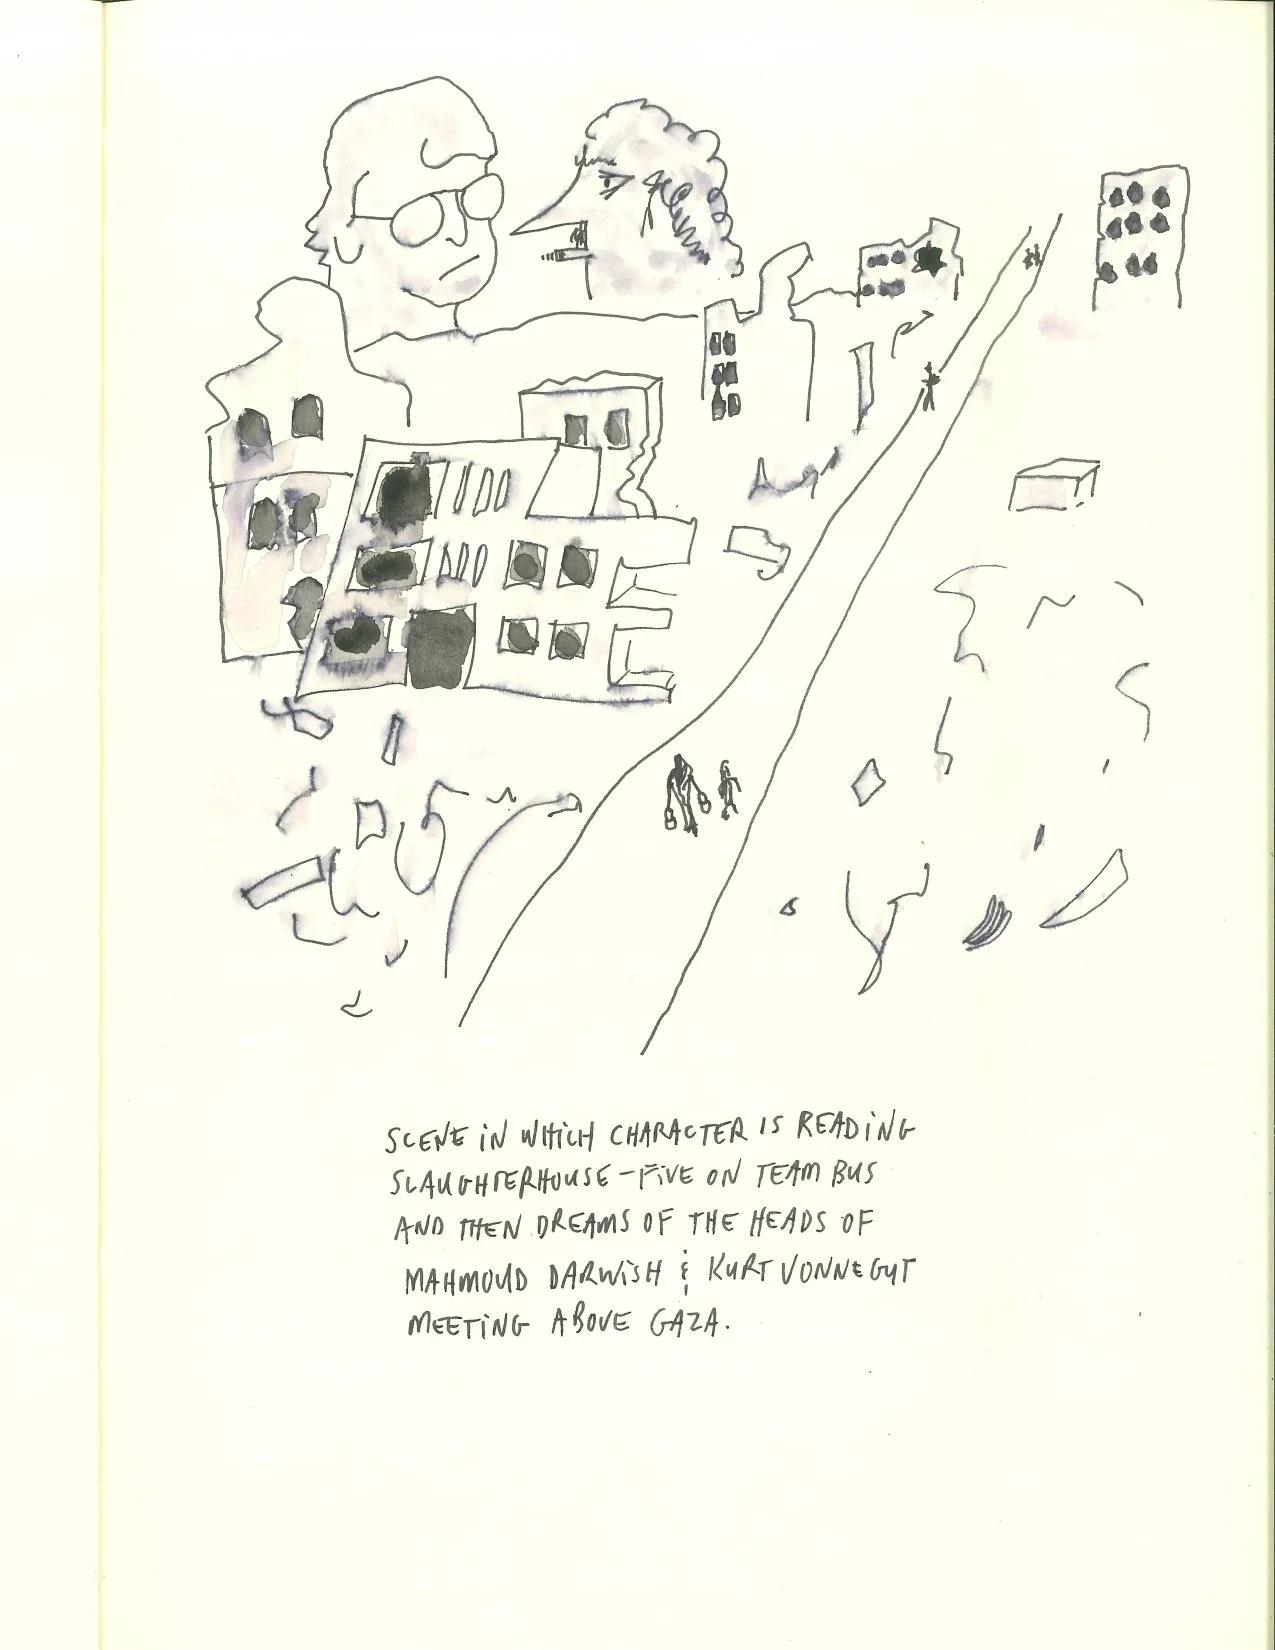 SCENE IN WHICH CHARACTER IS READING
SLAUGHTERHOUSE-FIVE ON TEAM BUS
AND THEN DREAMS OF THE HEADS OF
MAHMOUD DARWISH & KURT VONNEGUT
MEETING ABOVE GAZA.